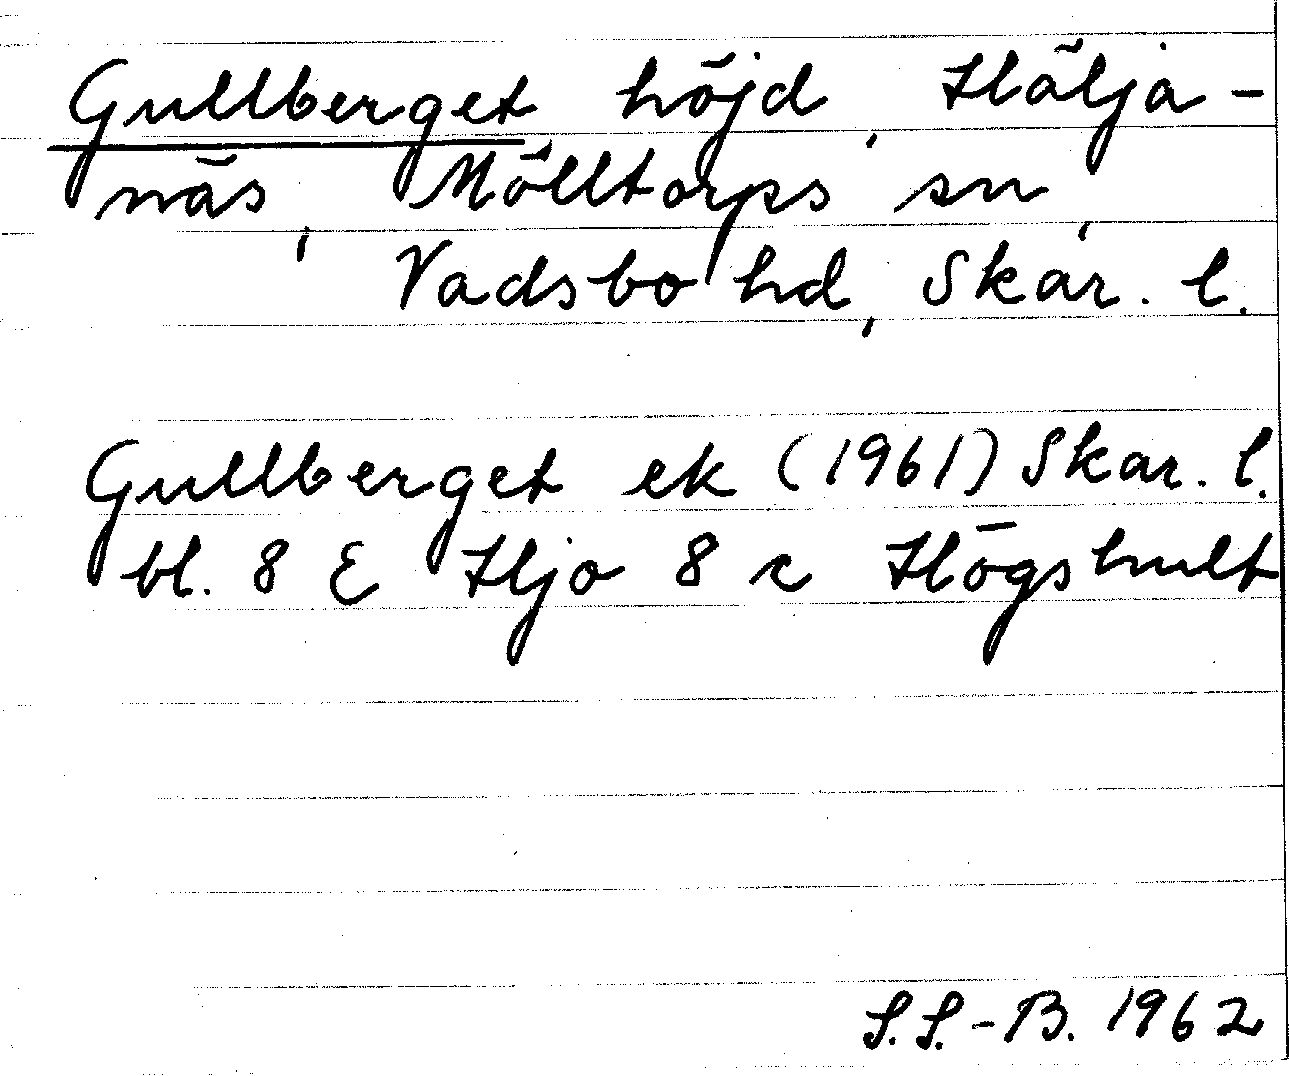 Gullberget höjd, Hälja-
näs, Mölltorps sn,
Vadsbo hd, Skar. l.
Gullberget ek (1961) Skar. l.
bl. 8 E Hjo 8 c Högshult
S.S.-B. 1962